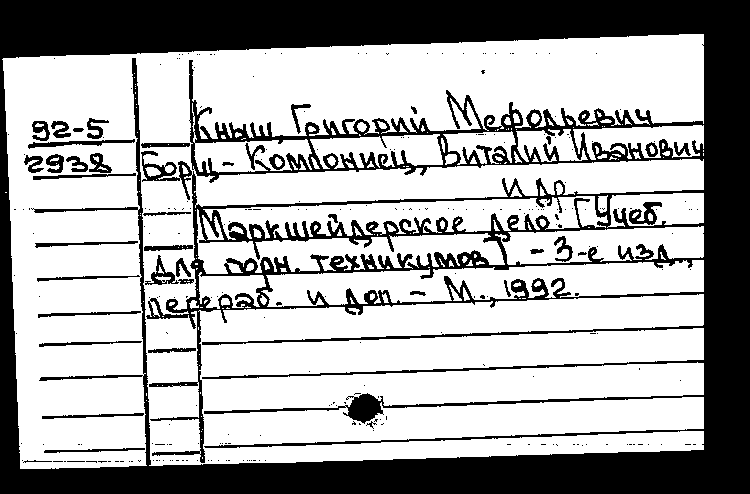 92-5
2938
Кныш, Григорий Мефодьевич
Борщ-Компониец, Виталий Иванович
и др.
Маркшейдерское дело: [Учеб.
для горн. техникумов]. - 3-е изд.,
перераб. и доп. - М., 1992.